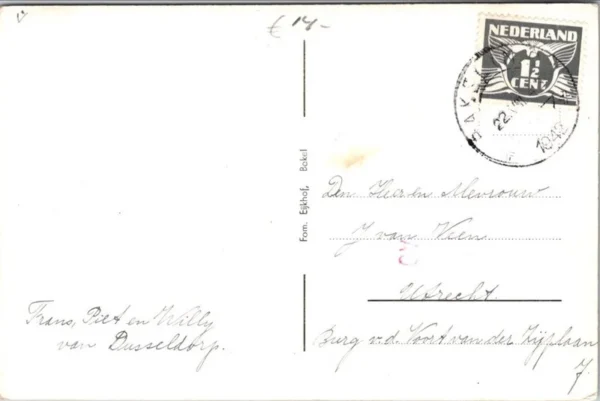 € 14-
NEDERLAND
1½
CENT
22
1942
Fam. Eijkhof, Bakel
Den Heer en Mevrouw
J van Veen
Utrecht.
Burg v.d. Voort van der Zijplaan
7
Frans, Piet en Willy
van Dusseldorp.